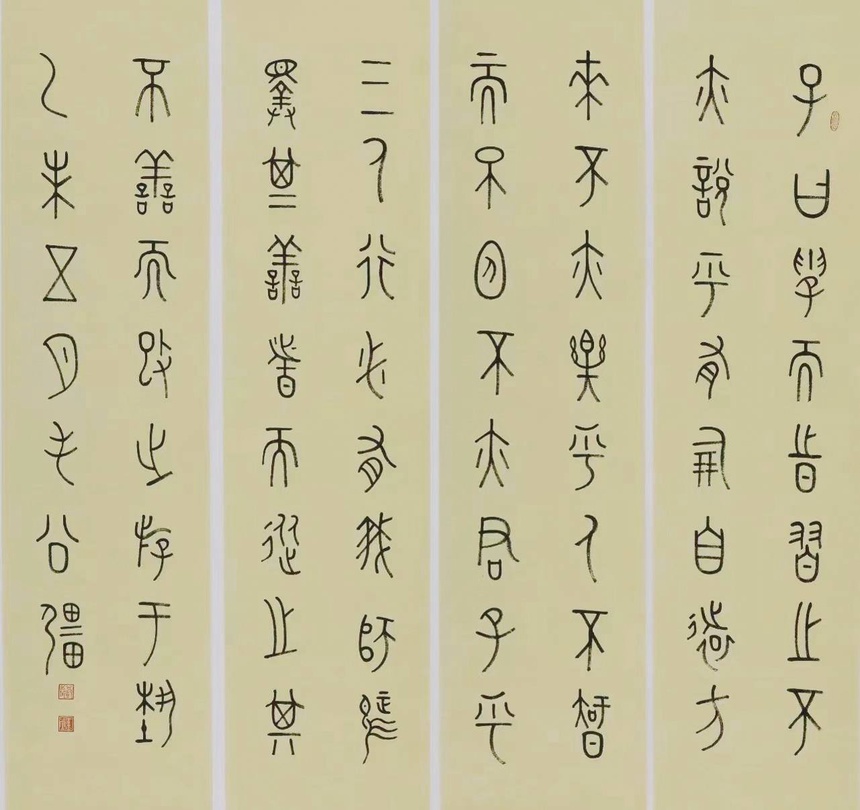 子曰學而時習之不
亦說乎有朋自遠方
來不亦樂乎人不智
而不慍不亦君子乎
三人行必有我師焉
擇其善者而從之其
不善而改之斿于埶
乙未五月毛公彊